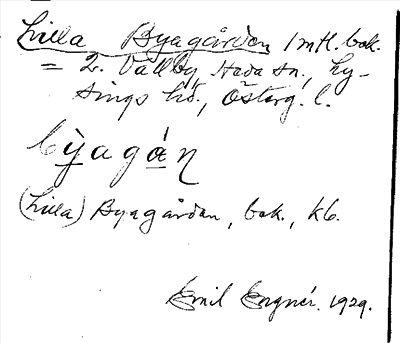 Lilla Byagården 1 mtl. bok.
= 2. Vallby, Hada sn., Ly-
sings hd., Österg. l.
bỳagạ́n
(Lilla) Byagårdan, bok., kb.
Emil Engnér. 1929.